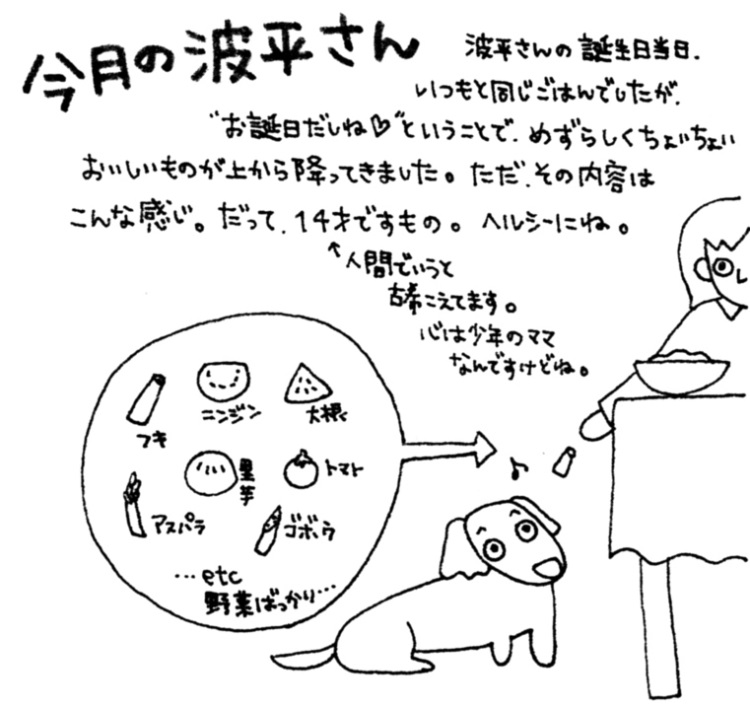 今月の波平さん
波平さんの誕生日当日.
いつもと同じごはんでしたが、
"お誕日だしね♡"ということで、めずらしくちょいちょい
おいしいものが上から降ってきました。ただ、その内容は
こんな感じ。だって、14才ですもの。ヘルシーにね。
↑人間でいうと
古希こえてます。
心は少年のママ
なんですけどね。
フキ
ニンジン
大根
里芋
トマト
アスパラ
ゴボウ
…etc
野菜ばっかり…